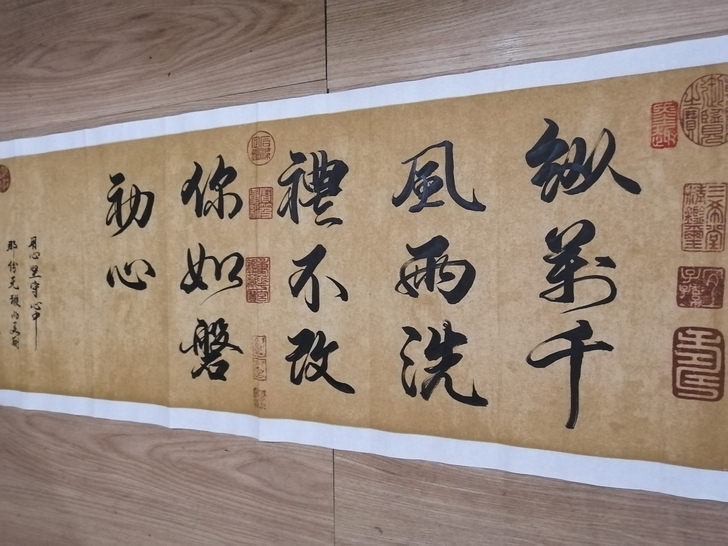 纵万千
風雨洗
禮不改
你如磐
初心
用心坚守心中
那份无瑕的美丽